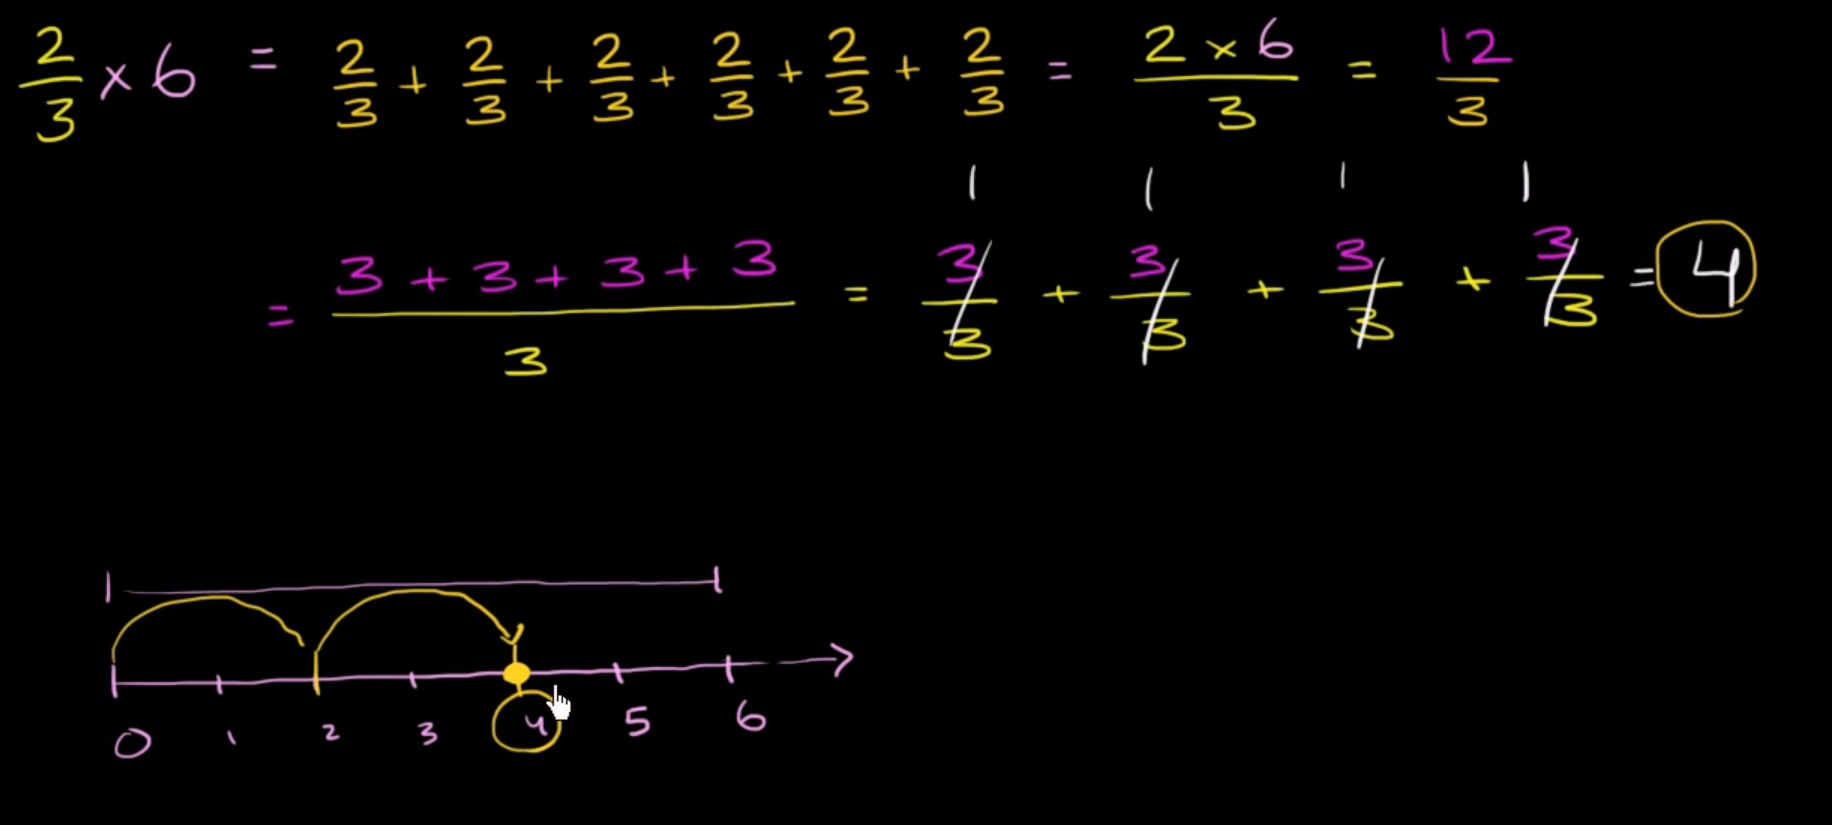 2/3 × 6 = 2/3 + 2/3 + 2/3 + 2/3 + 2/3 + 2/3 = 2 × 6/3 = 12/3
1 1 1 1
= 3 + 3 + 3 + 3/3 = 3/3 + 3/3 + 3/3 + 3/3 = 4
0 1 2 3 4 5 6